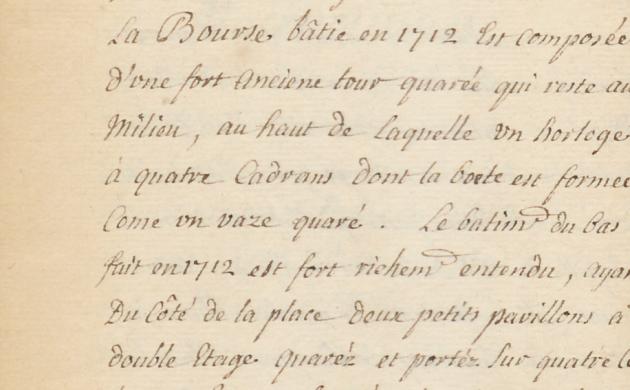 La Bourse bâtie en 1712 Est composée
d'vne fort Anciene tour quarée qui reste au
Milieu, au haut de Laquelle vn horloge
à quatre Cadrans dont la boete est formee
Come vn vaze quaré. Le batimt du bas
fait en 1712 est fort richemt entendu, ayan
Du Côté de la place deux petits pavillons à
double Etage quaréz et portéz Sur quatre